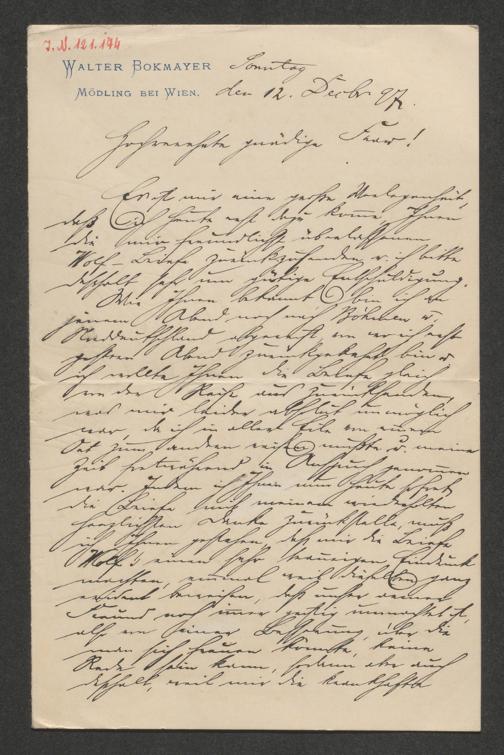 I. N. 121.174
WALTER BOKMAYER
MÖDLING BEI WIEN.
Sonntag
den 12. Decbr 97.
Hochverehrte gnädige Frau!
Es ist mir eine große Verlegenheit,
daß ich heute erst dazu komme, Ihnen
die mir freundlichst überlassenen
Wolf-Briefe zurückzusenden u. ich bitte
deßhalb sehr um gütige Entschuldigung.
Wie Ihnen bekannt bin ich an
jenem Abend noch nach Böhmen u.
Norddeutschland abgereist, von wo ich erst
gestern Abend zurückgekehrt bin u
ich wollte Ihnen die Briefe gleich
von der Reise aus zurücksenden,
was mir leider absolut unmöglich
war, da ich in aller Eile von einem
Ort zum andern reisen mußte u. meine
Zeit fortwährend in Anspruch genommen
war. Indem ich Ihnen nun heute
die Briefe mit meinem wiederholten
herzlichsten Danke zurückstelle, muß
ich Ihnen gestehen, daß mir die Briefe
Wolf's einen sehr traurigen Eindruck
machten, einmal weil dieselben ganz
evident beweisen, daß unser armer
Freund noch immer geistig umnachtet ist,
also von seiner Besserung, über die
man sich freuen könnte, keine
Rede sein kann, sodann aber auch
deßhalb, weil mir die krankhafte